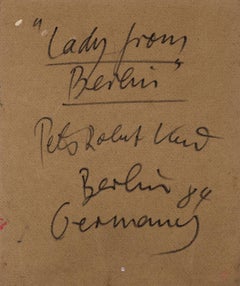 "Lady from
Berlin"
Peter Robert Keil
Berlin 84
Germany